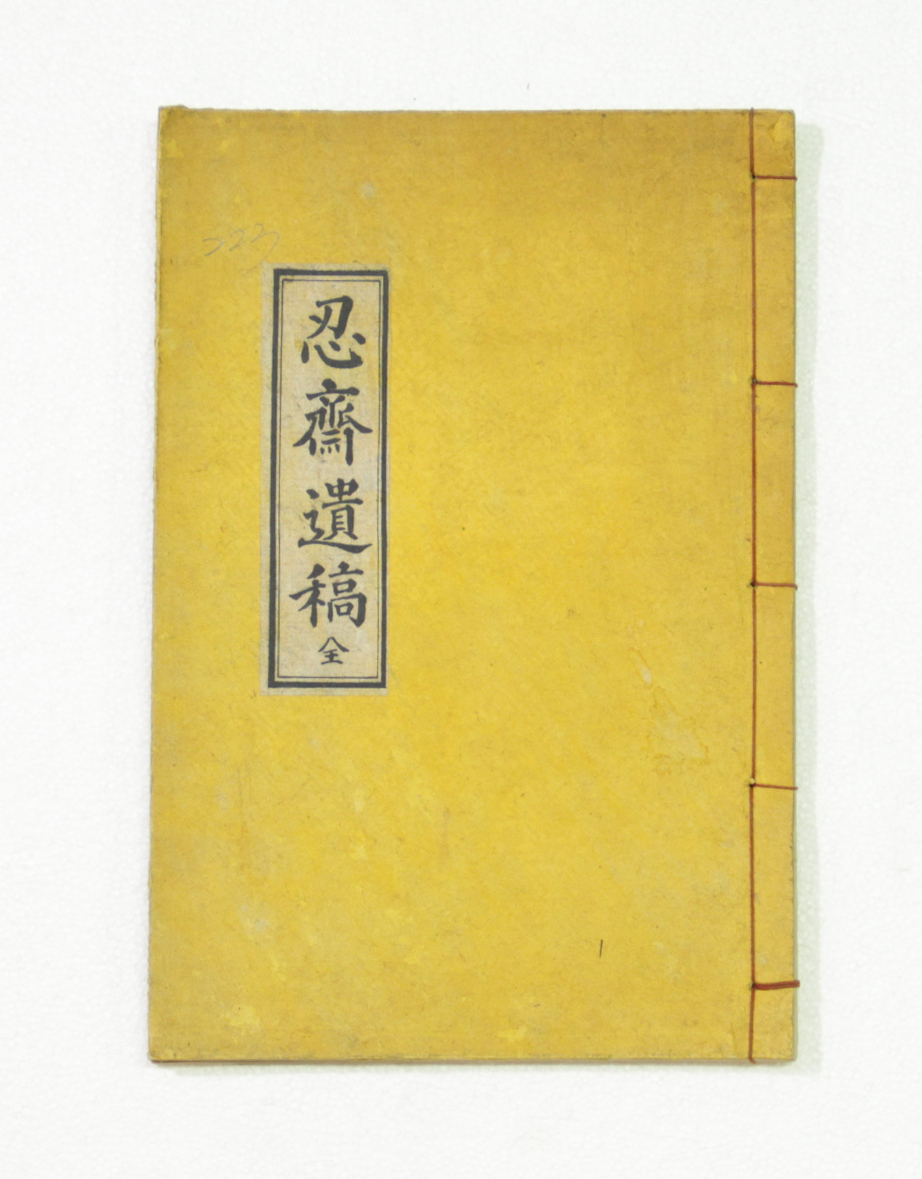 223
忍齋遺稿 全